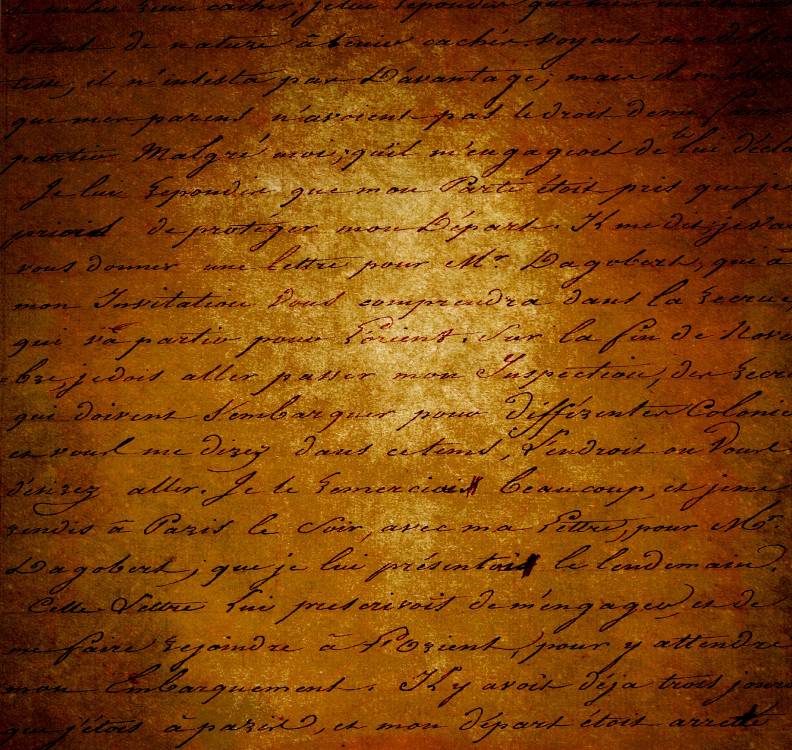 de nature à être cachés. Voyant
il n'insista pas D'avantage; mais il
que mes parens n'avoient pas le droit de me
partir Malgré moi; qu'il m'engageoit de le lui
Je lui Repondis que mon Parti étoit pris que je
priois de protéger mon Départ. Il me dit; je
vous donner une lettre pour Mr. Dagobert, qui à
mon Invitation Vous comprendra dans la Recrue,
qui va partir pour Lorient. Sur la fin de Nove
bre, je dois aller passer mon Inspection, des
qui doivent S'embarquer pour différentes Colonies
et vous me direz dans ce tems, L'endroit ou Vous
désirez aller. Je le Remerciois beaucoup, et je me
rendis à Paris le Soir, avec ma Lettre, pour Mr.
Dagobert; que je lui présentois le lendemain.
Cette Lettre Lui prescrivoit de m'engager, et de
me faire Rejoindre à L'Orient, pour y attendre
mon Embarquement. Il y avoit déja trois jours
que j'étois à paris, et mon départ étoit arrêté